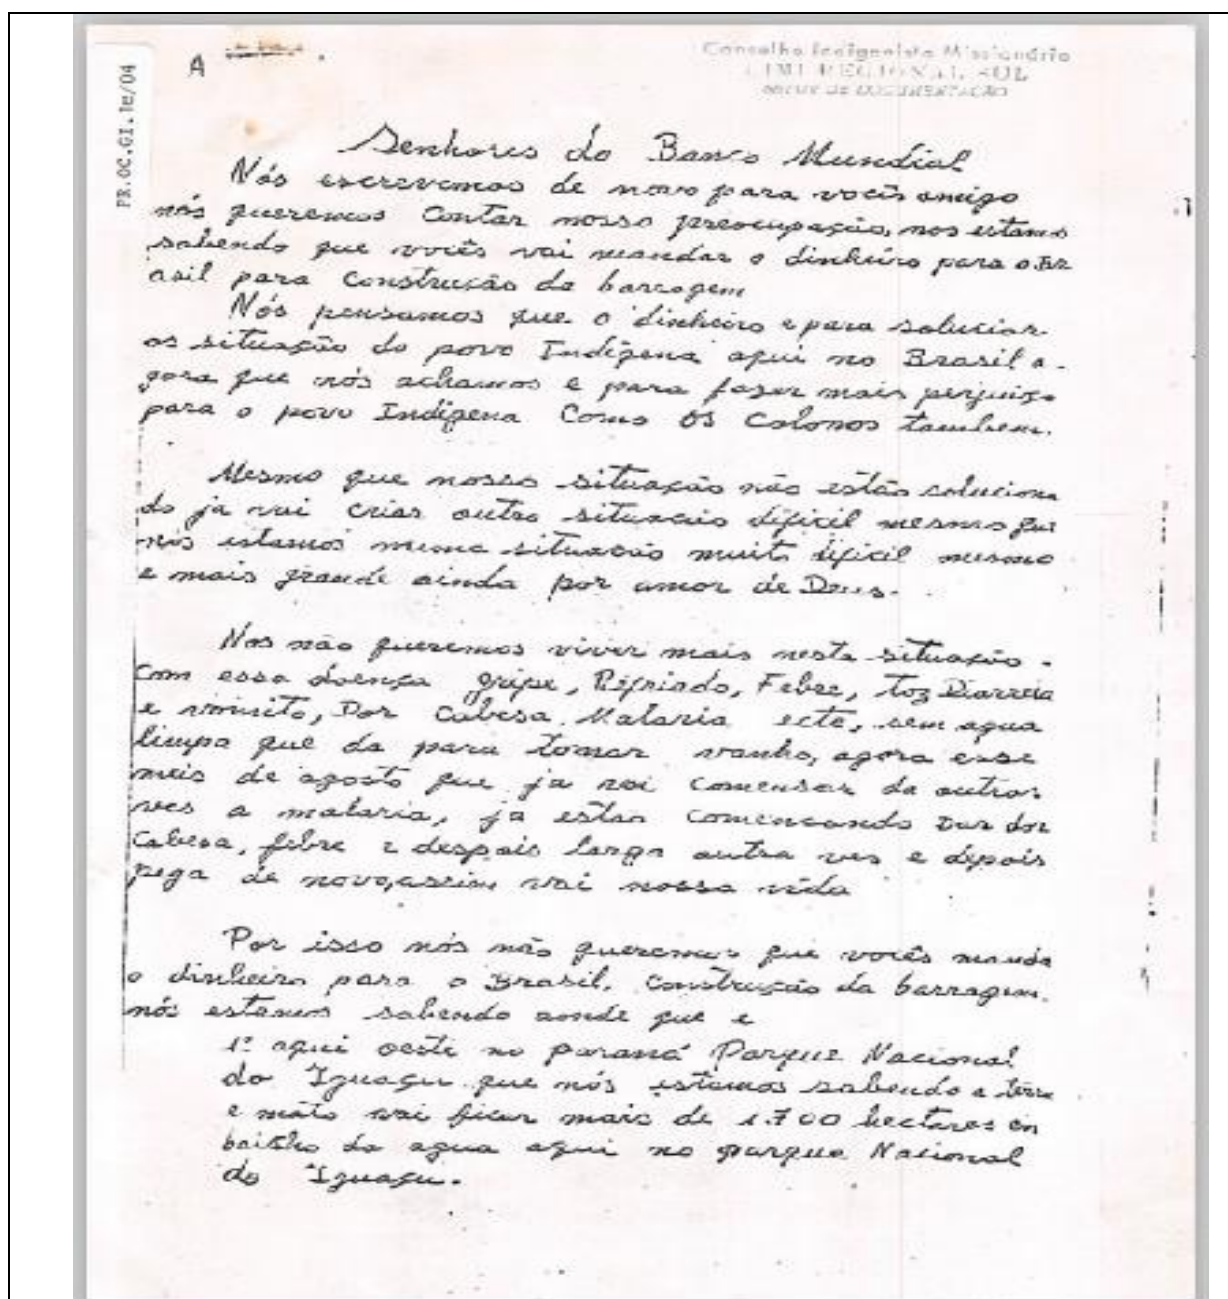 PR.OC.GI.1e/04
A
Conselho Indigenista Missionário
CIMI REGIONAL SUL
SETOR DE DOCUMENTAÇÃO
Senhores do Banco Mundial
Nós escrevemos de novo para vocês amigo
nós queremos contar nosso preocupação, nos estamos
sabendo que vocês vai mandar o dinheiro para o Br
asil para Construção da barragem
Nós pensamos que o dinheiro e para soluciar
as situação do povo Indígena aqui no Brasil a-
gora que nós achamos e para fazer mais perjuizo
para o povo Indígena Como os Colonos tambem.
Mesmo que nossa situação não estão soluciona
do ja vai criar outro situacão dificil mesmo que
nós estamos numa situação muito dificil mesmo
e mais grande ainda por amor de Deus.
Nos não queremos viver mais nesta situação.
Com essa doença gripe, Rifriado, Febre, toz Diarreia
e vomito, Dor Cabesa. Malaria ecte, sem agua
limpa que da para tomar vanho, agora esse
meis de agosto que ja vai comensar da outra
ves a malaria, ja estão comencando Dar dor
Cabesa, febre e despois larga outra ves e depois
pega de novo, assim vai nossa vida
Por isso nós não queremos que vocês manda
o dinheiro para o Brasil. Construção da barragem.
nós estamos sabendo aonde que e
1º aqui oeste no paraná Parque Nacional
do Iguaçu que nós estamos sabendo a terra
e mato vai ficar mais de 1.700 hectares en
baixho da agua aqui no parque Nacional
do Iguaçu.